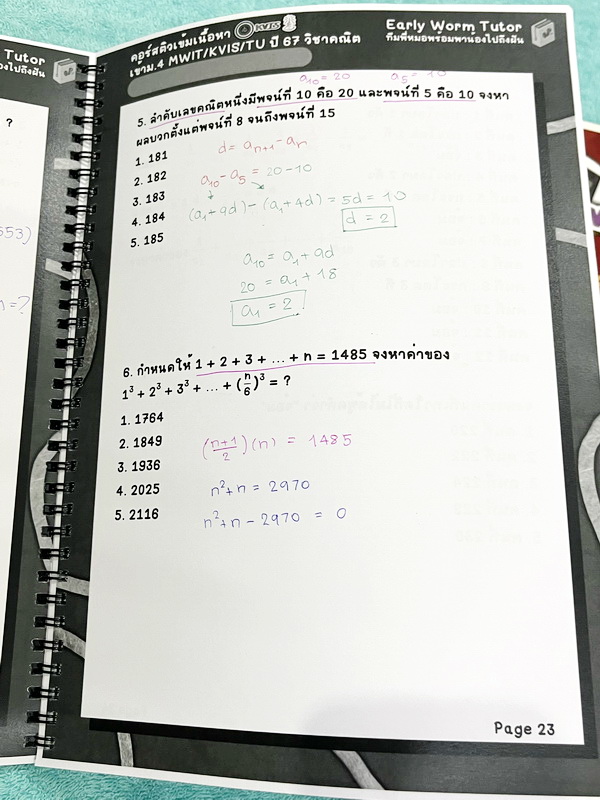 Tutor
องไปถึงฝัน
?
553)
n=?
คอร์สติวเข้มเนื้อหา KVIS
เข้าม.4 MWIT/KVIS/TU ปี 67 วิชาคณิต
Early Worm Tutor
ทีมพี่หมอพร้อมพาน้องไปถึงฝัน
a10 = 20 a5 = 10
5. ลำดับเลขคณิตหนึ่งมีพจน์ที่ 10 คือ 20 และพจน์ที่ 5 คือ 10 จงหา
ผลบวกตั้งแต่พจน์ที่ 8 จนถึงพจน์ที่ 15
1. 181
d = an+1 - an
2. 182
a10 - a5 = 20 - 10
3. 183
(a1 + 9d) - (a1 + 4d) = 5d = 10
4. 184
d = 2
5. 185
a10 = a1 + 9d
20 = a1 + 18
a1 = 2
6. กำหนดให้ 1 + 2 + 3 + ... + n = 1485 จงหาค่าของ
1³ + 2³ + 3³ + ... + (n/6)³ = ?
1. 1764
2. 1849
(n+1/2)(n) = 1485
3. 1936
4. 2025
n² + n = 2970
5. 2116
n² + n - 2970 = 0
Page 23